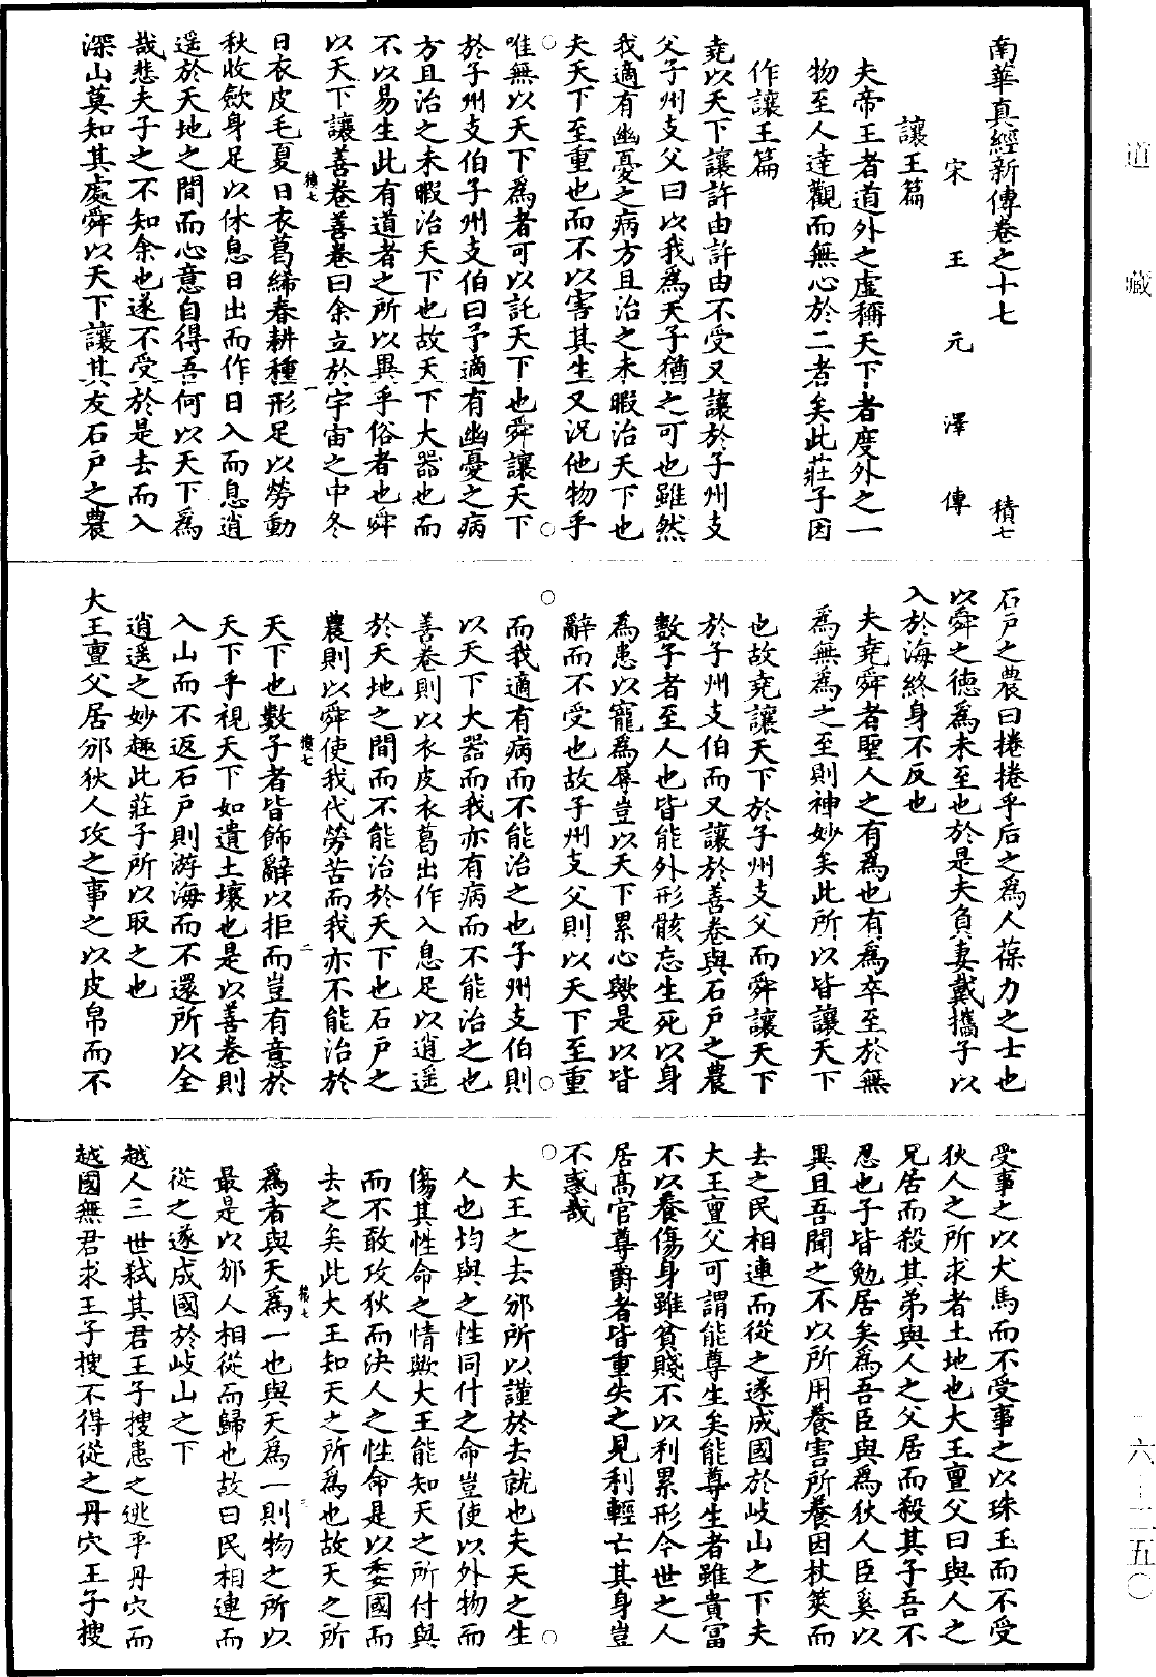 道藏
南華真經新傳卷之十七　積七
宋王元澤傳
讓王篇
夫帝王者道外之虛稱天下者度外之一
物至人達觀而無心於二者矣此莊子因
作讓王篇
堯以天下讓許由許由不受又讓於子州支
父子州支父曰以我為天子猶之可也雖然
我適有幽憂之病方且治之未暇治天下也
夫天下至重也而不以害其生又況他物乎
唯無以天下為者可以託天下也舜讓天下
於子州支伯子州支伯曰予適有幽憂之病
方且治之未暇治天下也故天下大器也而
不以易生此有道者之所以異乎俗者也舜
以天下讓善卷善卷曰余立於宇宙之中冬
積七　一
日衣皮毛夏日衣葛絺春耕種形足以勞動
秋收歛身足以休息日出而作日入而息逍
遥於天地之間而心意自得吾何以天下為
哉悲夫子之不知余也遂不受於是去而入
深山莫知其處舜以天下讓其友石戶之農
石戶之農曰捲捲乎后之為人葆力之士也
以舜之德為未至也於是夫負妻戴攜子以
入於海終身不反也
夫堯舜者聖人之有為也有為卒至於無
為無為之至則神妙矣此所以皆讓天下
也故堯讓天下於子州支父而舜讓天下
於子州支伯而又讓於善卷與石戶之農
數子者至人也皆能外形骸忘生死以身
為患以寵為辱豈以天下累心歟是以皆
辭而不受也故子州支父則以天下至重
而我適有病而不能治之也子州支伯則
以天下大器而我亦有病而不能治之也
善卷則以衣皮衣葛出作入息足以逍遥
於天地之間而不能治於天下也石戶之
農則以舜使我代勞苦而我亦不能治於
積七　二
天下也數子者皆飾辭以拒而豈有意於
天下乎視天下如遺土壤也是以善卷則
入山而不返石戶則游海而不還所以全
逍遥之妙趣此莊子所以取之也
大王亶父居邠狄人攻之事之以皮帛而不
受事之以犬馬而不受事之以珠玉而不受
狄人之所求者土地也大王亶父曰與人之
兄居而殺其弟與人之父居而殺其子吾不
忍也子皆勉居矣為吾臣與為狄人臣奚以
異且吾聞之不以所用養害所養因杖筴而
去之民相連而從之遂成國於岐山之下夫
大王亶父可謂能尊生矣能尊生者雖貴富
不以養傷身雖貧賤不以利累形今世之人
居高官尊爵者皆重失之見利輕亡其身豈
不惑哉
大王之去邠所以謹於去就也夫天之生
人也均與之性同付之命豈使以外物而
傷其性命之情歟大王能知天之所付與
而不敢攻狄而決人之性命是以委國而
去之矣此大王知天之所為也故天之所
積七　三
為者與天為一也與天為一則物之所以
最是以邠人相從而歸也故曰民相連而
從之遂成國於岐山之下
越人三世弒其君王子搜患之逃乎丹穴而
越國無君求王子搜不得從之丹穴王子搜